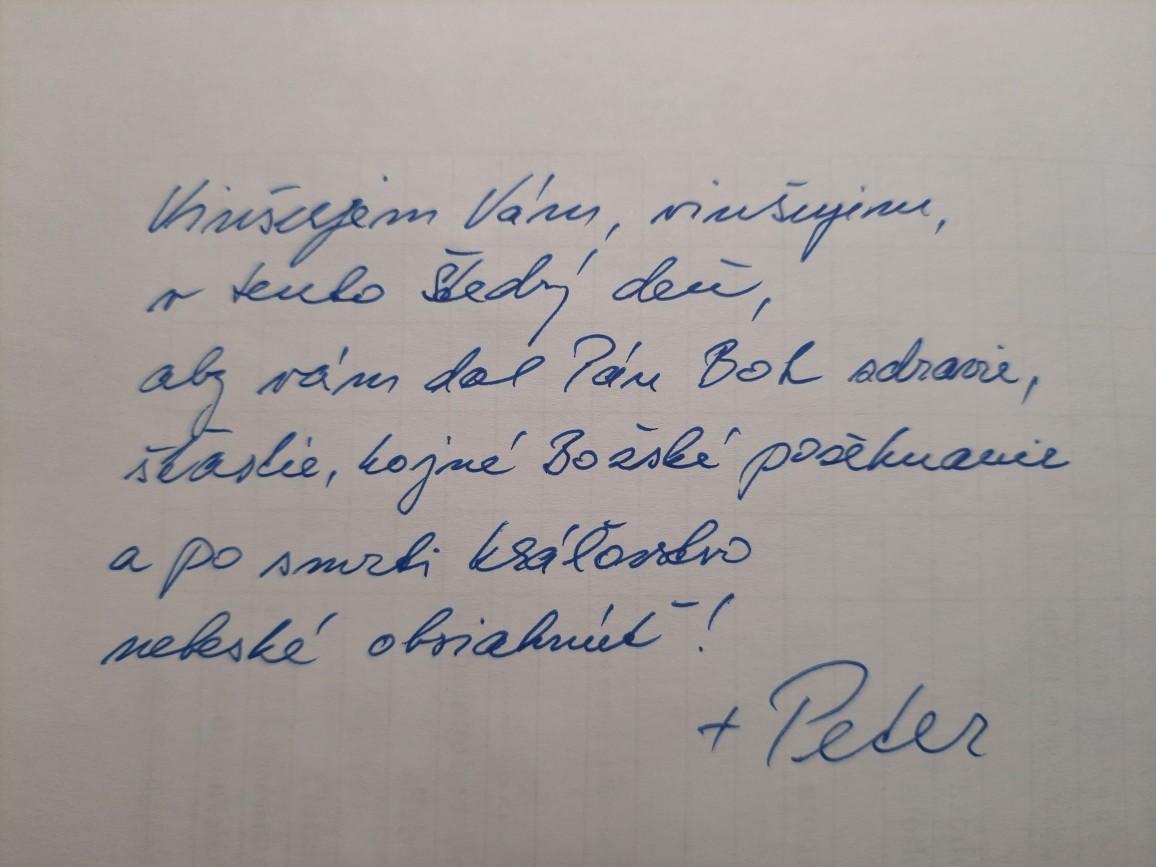 Vinšujem Vám, vinšujem,
v tento Štedrý deň,
aby vám dal Pán Boh zdravie,
šťastie, hojné Božské požehnanie
a po smrti kráľovstvo
nebeské obsiahnúť!
+ Peter